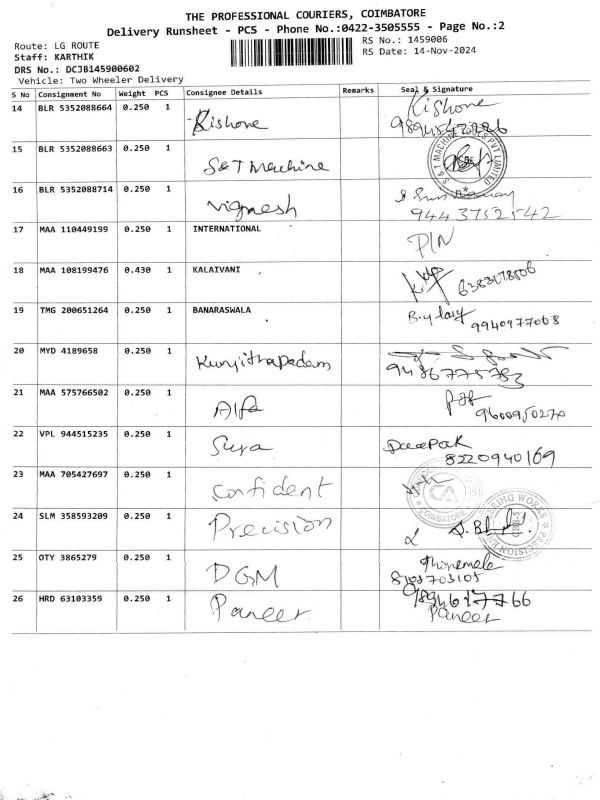 THE PROFESSIONAL COURIERS, COIMBATORE
Delivery Runsheet - PCS - Phone No.:0422-3505555 - Page No.:2
Route: LG ROUTE
RS No.: 1459006
Staff: KARTHIK
RS Date: 14-Nov-2024
DRS No.: DCJB145900602
Vehicle: Two Wheeler Delivery
S No Consignment No Weight PCS Consignee Details Remarks Seal & Signature
14 BLR 5352088664 0.250 1 Kishore Kishore
15 BLR 5352088663 0.250 1 S&T Machine
16 BLR 5352088714 0.250 1 Vignesh
9443752542
17 MAA 110449199 0.250 1 INTERNATIONAL P/N
18 MAA 108199476 0.430 1 KALAIVANI
19 TMG 200651264 0.250 1 BANARASWALA
9940977068
20 MYD 4189658 0.250 1 Kunjithapadam
9486775783
21 MAA 575766502 0.250 1 Alfa
9600950270
22 VPL 944515235 0.250 1 Surya Deepak
8220940169
23 MAA 705427697 0.250 1 Confident
COIMBATORE
24 SLM 358593209 0.250 1 Precision
25 OTY 3865279 0.250 1 DGM
26 HRD 63103359 0.250 1 Paneer
Paneer